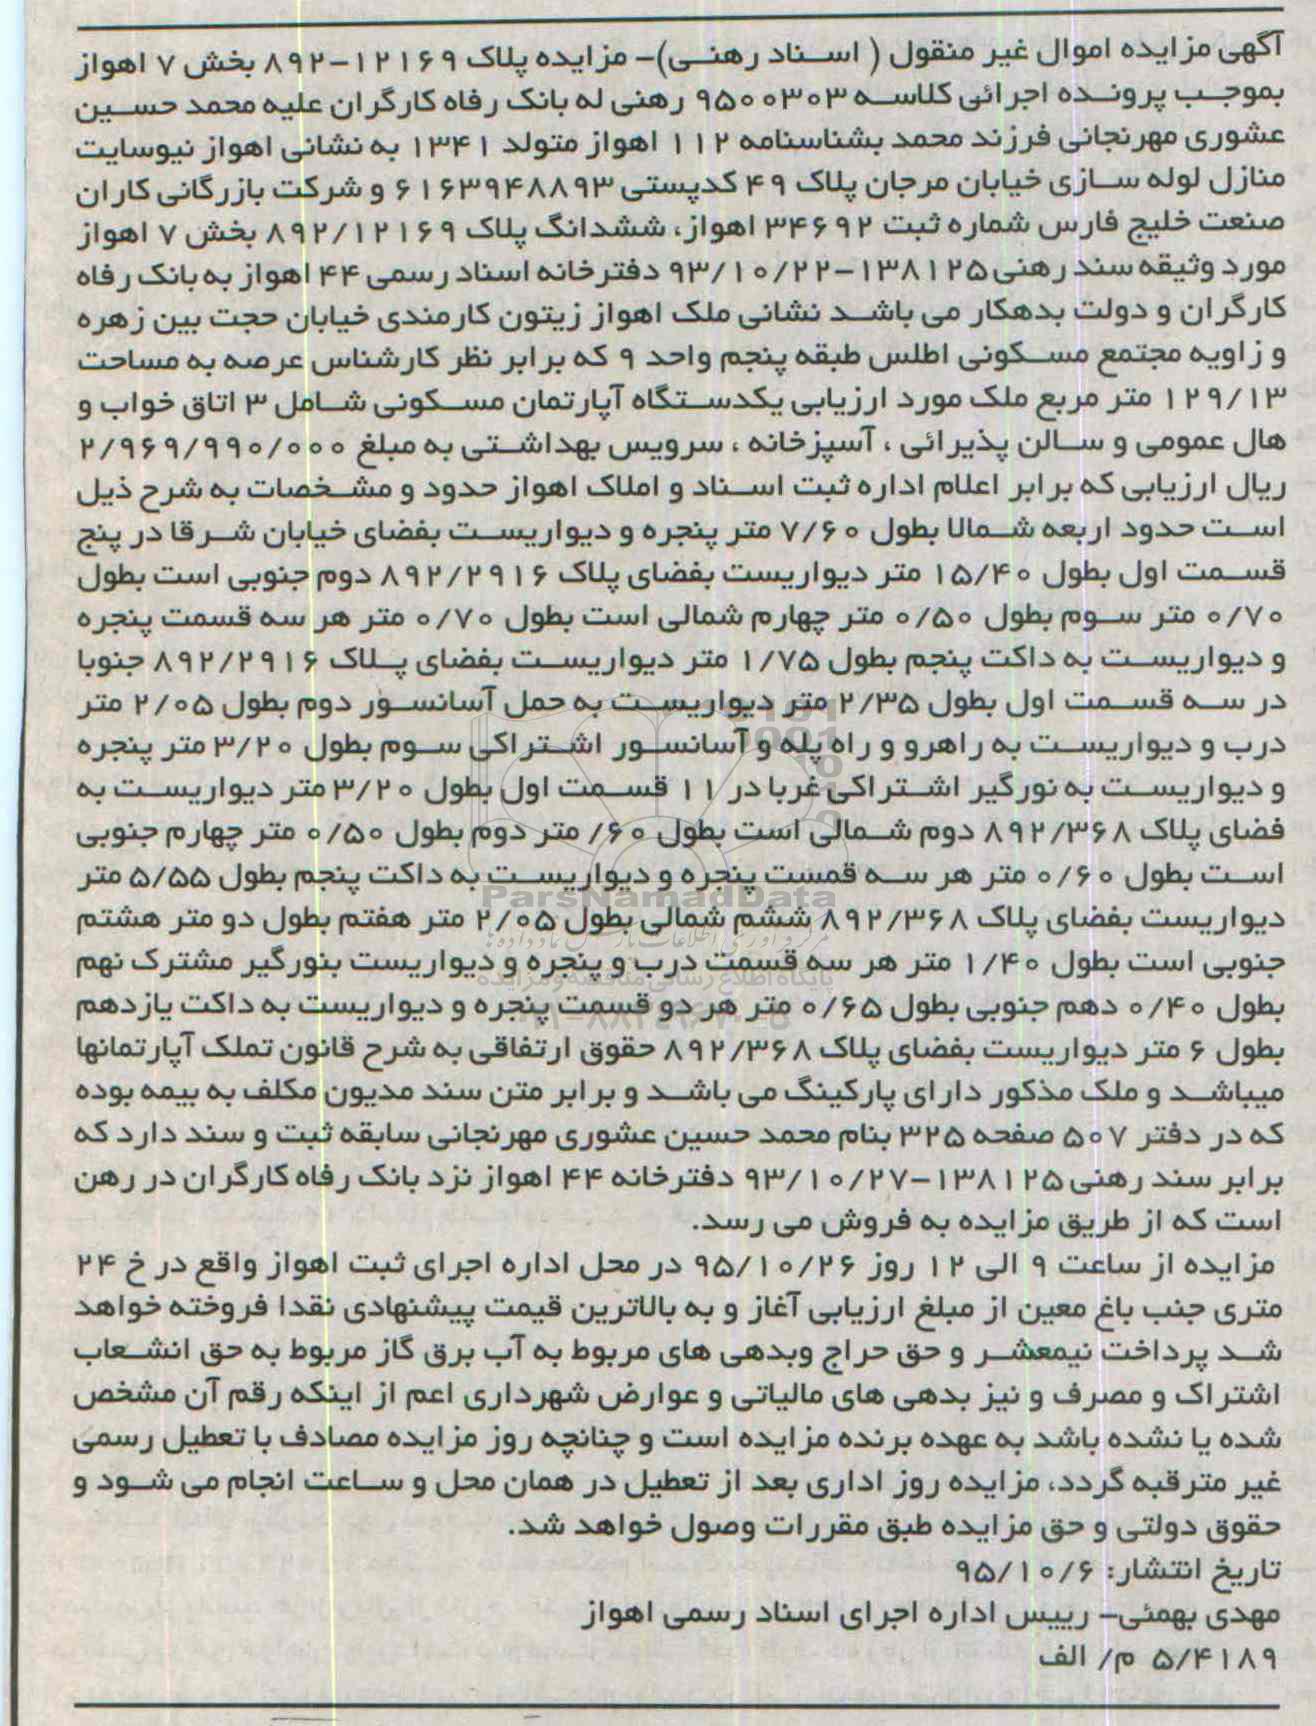 آگهی مزایده اموال غیر منقول ( اسناد رهنی)- مزایده پلاک ۱۲۱۶۹-۸۹۲ بخش ۷ اهواز
بموجب پرونده اجرائی کلاسه ۹۵۰۰۳۰۳ رهنی له بانک رفاه کارگران علیه محمد حسین
عشوری مهرنجانی فرزند محمد بشناسنامه ۱۱۲ اهواز متولد ۱۳۴۱ به نشانی اهواز نیوسایت
منازل لوله سازی خیابان مرجان پلاک ۴۹ کدپستی ۶۱۶۳۹۴۸۸۹۳ و شرکت بازرگانی کاران
صنعت خلیج فارس شماره ثبت ۳۴۶۹۲ اهواز، ششدانگ پلاک ۸۹۲/۱۲۱۶۹ بخش ۷ اهواز
مورد وثیقه سند رهنی ۱۳۸۱۲۵-۹۳/۱۰/۲۲ دفترخانه اسناد رسمی ۴۴ اهواز به بانک رفاه
کارگران و دولت بدهکار می باشد نشانی ملک اهواز زیتون کارمندی خیابان حجت بین زهره
و زاویه مجتمع مسکونی اطلس طبقه پنجم واحد ۹ که برابر نظر کارشناس عرصه به مساحت
۱۲۹/۱۳ متر مربع ملک مورد ارزیابی یکدستگاه آپارتمان مسکونی شامل ۳ اتاق خواب و
هال عمومی و سالن پذیرائی ، آسپزخانه ، سرویس بهداشتی به مبلغ ۲/۹۶۹/۹۹۰/۰۰۰
ریال ارزیابی که برابر اعلام اداره ثبت اسناد و املاک اهواز حدود و مشخصات به شرح ذیل
است حدود اربعه شمالا بطول ۷/۶۰ متر پنجره و دیواریست بفضای خیابان شرقا در پنج
قسمت اول بطول ۱۵/۴۰ متر دیواریست بفضای پلاک ۸۹۲/۲۹۱۶ دوم جنوبی است بطول
۰/۷۰ متر سوم بطول ۰/۵۰ متر چهارم شمالی است بطول ۰/۷۰ متر هر سه قسمت پنجره
و دیواریست به داکت پنجم بطول ۱/۷۵ متر دیواریست بفضای پلاک ۸۹۲/۲۹۱۶ جنوبا
در سه قسمت اول بطول ۲/۳۵ متر دیواریست به حمل آسانسور دوم بطول ۲/۰۵ متر
درب و دیواریست به راهرو و راه پله و آسانسور اشتراکی سوم بطول ۳/۲۰ متر پنجره
و دیواریست به نورگیر اشتراکی غربا در ۱۱ قسمت اول بطول ۳/۲۰ متر دیواریست به
فضای پلاک ۸۹۲/۳۶۸ دوم شمالی است بطول ۶۰/ متر دوم بطول ۰/۵۰ متر چهارم جنوبی
است بطول ۰/۶۰ متر هر سه قمست پنجره و دیواریست به داکت پنجم بطول ۵/۵۵ متر
دیواریست بفضای پلاک ۸۹۲/۳۶۸ ششم شمالی بطول ۲/۰۵ متر هفتم بطول دو متر هشتم
جنوبی است بطول ۱/۴۰ متر هر سه قسمت درب و پنجره و دیواریست بنورگیر مشترک نهم
بطول ۰/۴۰ دهم جنوبی بطول ۰/۶۵ متر هر دو قسمت پنجره و دیواریست به داکت یازدهم
بطول ۶ متر دیواریست بفضای پلاک ۸۹۲/۳۶۸ حقوق ارتفاقی به شرح قانون تملک آپارتمانها
میباشد و ملک مذکور دارای پارکینگ می باشد و برابر متن سند مدیون مکلف به بیمه بوده
که در دفتر ۵۰۷ صفحه ۳۲۵ بنام محمد حسین عشوری مهرنجانی سابقه ثبت و سند دارد که
برابر سند رهنی ۱۳۸۱۲۵-۹۳/۱۰/۲۷ دفترخانه ۴۴ اهواز نزد بانک رفاه کارگران در رهن
است که از طریق مزایده به فروش می رسد.
مزایده از ساعت ۹ الی ۱۲ روز ۹۵/۱۰/۲۶ در محل اداره اجرای ثبت اهواز واقع در خ ۲۴
متری جنب باغ معین از مبلغ ارزیابی آغاز و به بالاترین قیمت پیشنهادی نقدا فروخته خواهد
شد پرداخت نیمعشر و حق حراج وبدهی های مربوط به آب برق گاز مربوط به حق انشعاب
اشتراک و مصرف و نیز بدهی های مالیاتی و عوارض شهرداری اعم از اینکه رقم آن مشخص
شده یا نشده باشد به عهده برنده مزایده است و چنانچه روز مزایده مصادف با تعطیل رسمی
غیر مترقبه گردد، مزایده روز اداری بعد از تعطیل در همان محل و ساعت انجام می شود و
حقوق دولتی و حق مزایده طبق مقررات وصول خواهد شد.
تاریخ انتشار: ۹۵/۱۰/۶
مهدی بهمئی- رییس اداره اجرای اسناد رسمی اهواز
۵/۴۱۸۹ م/ الف
ParsNamadData
پایگاه اطلاع رسانی مناقصه و مزایده